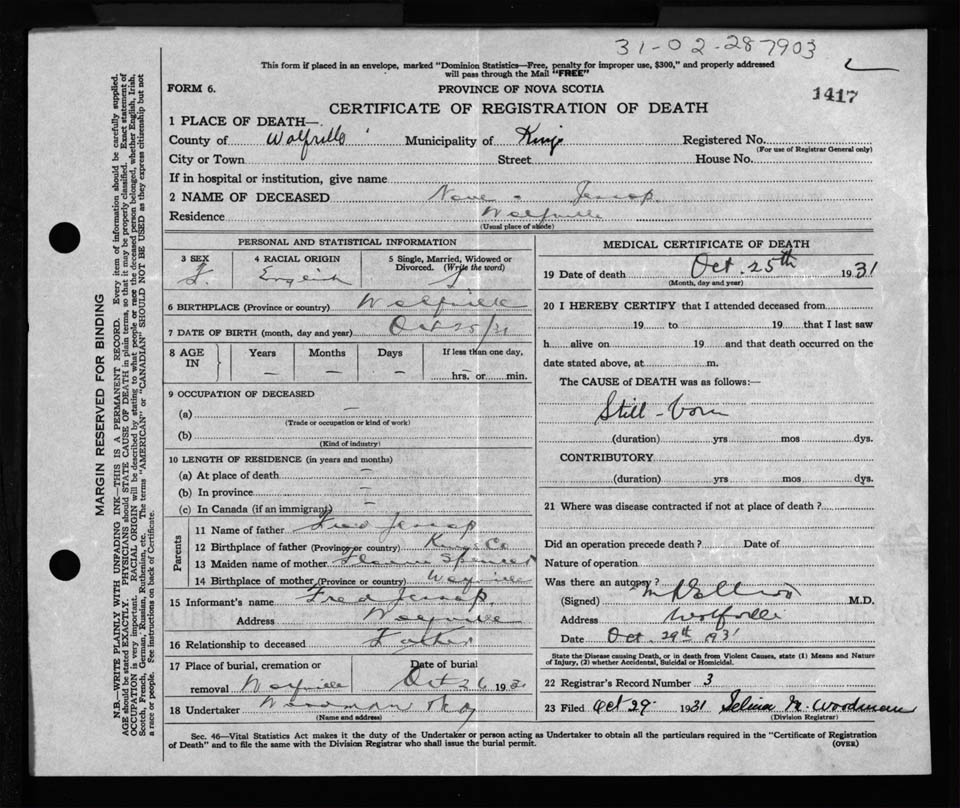 31-02-287903
This form if placed in an envelope, marked "Dominion Statistics—Free, penalty for improper use, $300," and properly addressed
will pass through the Mail "FREE"
FORM 6.
PROVINCE OF NOVA SCOTIA
1417
CERTIFICATE OF REGISTRATION OF DEATH
1 PLACE OF DEATH—
County of Wolfville Municipality of Kings Registered No.
(For use of Registrar General only)
City or Town Street House No.
If in hospital or institution, give name
2 NAME OF DECEASED None - Jessop.
Residence Wolfville
(Usual place of abode)
PERSONAL AND STATISTICAL INFORMATION
3 SEX 4 RACIAL ORIGIN 5 Single, Married, Widowed or
Divorced. (Write the word)
F. English S
6 BIRTHPLACE (Province or country) Wolfville
7 DATE OF BIRTH (month, day and year) Oct 25/31
8 AGE IN Years Months Days If less than one day,
— — — hrs. or min.
9 OCCUPATION OF DECEASED
(a) —
(Trade or occupation or kind of work)
(b)
(Kind of industry)
10 LENGTH OF RESIDENCE (in years and months)
(a) At place of death —
(b) In province —
(c) In Canada (if an immigrant) —
Parents
11 Name of father Fred Jessop
12 Birthplace of father (Province or country) Kings Co
13 Maiden name of mother Spencer
14 Birthplace of mother (Province or country) Wolfville
15 Informant's name Fred Jessop.
Address Wolfville
16 Relationship to deceased Father
17 Place of burial, cremation or Date of burial
removal Wolfville Oct 26 1931
18 Undertaker Woodman
(Name and address)
MEDICAL CERTIFICATE OF DEATH
19 Date of death Oct. 25th 1931
(Month, day and year)
20 I HEREBY CERTIFY that I attended deceased from
19 to 19 that I last saw
h alive on 19 and that death occurred on the
date stated above, at m.
The CAUSE of DEATH was as follows:—
Still-born
(duration) yrs mos dys.
CONTRIBUTORY
(duration) yrs mos dys.
21 Where was disease contracted if not at place of death?
Did an operation precede death? Date of
Nature of operation
Was there an autopsy?
(Signed) M.D.
Address Wolfville
Date Oct. 29th 1931
State the Disease causing Death, or in death from Violent Causes, state (1) Means and Nature
of Injury, (2) whether Accidental, Suicidal or Homicidal.
22 Registrar's Record Number 3
23 Filed Oct 29 1931 Selina M. Woodman
(Division Registrar)
Sec. 46—Vital Statistics Act makes it the duty of the Undertaker or person acting as Undertaker to obtain all the particulars required in the "Certificate of Registration
of Death" and to file the same with the Division Registrar who shall issue the burial permit.
(OVER)
MARGIN RESERVED FOR BINDING
N.B.—WRITE PLAINLY WITH UNFADING INK—THIS IS A PERMANENT RECORD. Every item of information should be carefully supplied.
AGE should be stated EXACTLY. PHYSICIANS should STATE CAUSE OF DEATH in plain terms, so that it may be properly classified. Exact statement of
OCCUPATION is very important. RACIAL ORIGIN will be described by stating to what people or race the deceased person belonged, whether English, Irish,
Scotch, French, German, Russian, Ruthenian, etc. The terms "AMERICAN" or "CANADIAN" SHOULD NOT BE USED as they express citizenship but not
a race or people. See instructions on back of Certificate.